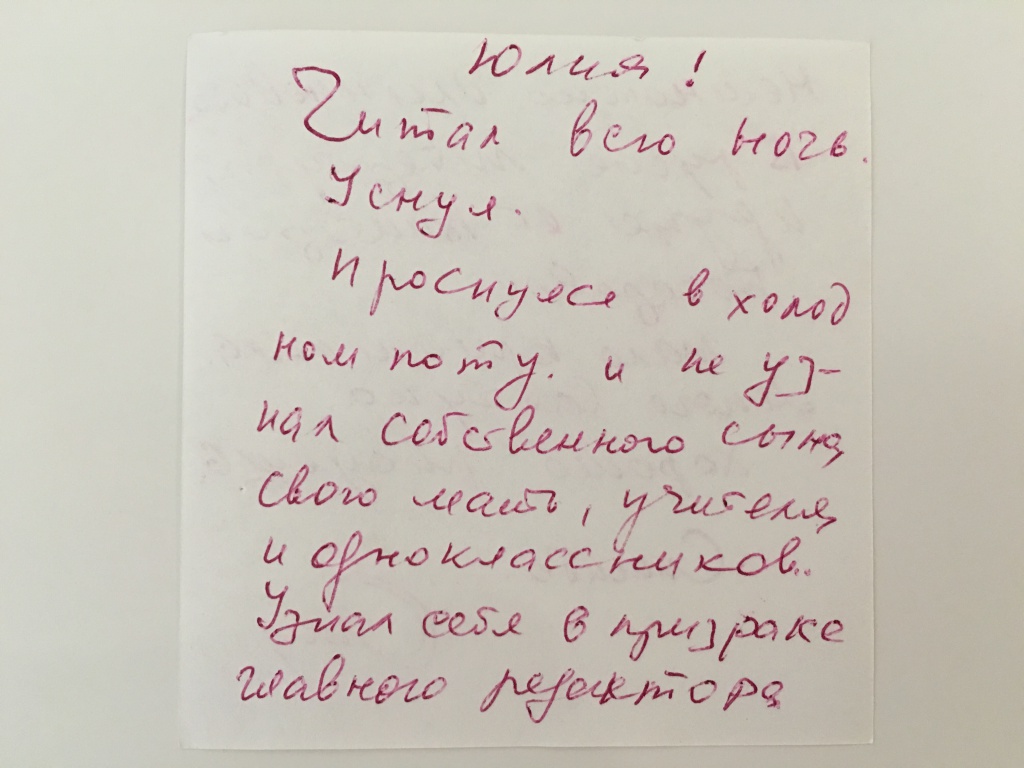 Юлия!
Читал всю ночь.
Уснул.
Проснулся в холод
ном поту. и не уз-
нал собственного сына,
свою мать, учителя,
и одноклассников..
Узнал себя в призраке
главного редактора